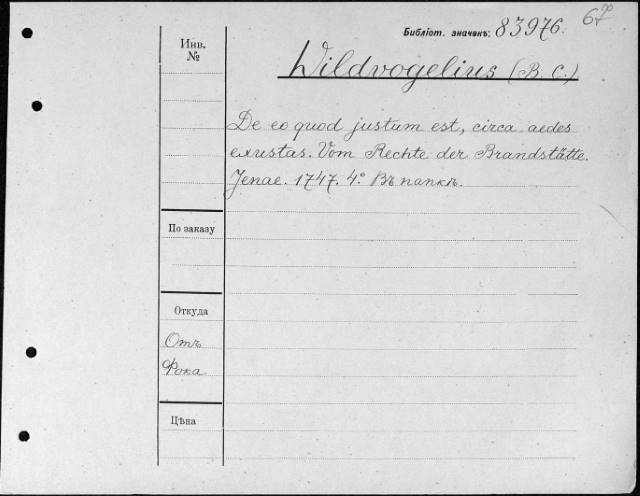 67
Библіот. значекъ: 83976.
Инв.
№
Wildvogelius (B. C.)
De eo quod justum est, circa aedes
exustas. Vom Rechte der Brandstätte.
Jenae. 1747. 4.° Въ папкѣ.
По заказу
Откуда
Отъ
Фока.
Цѣна